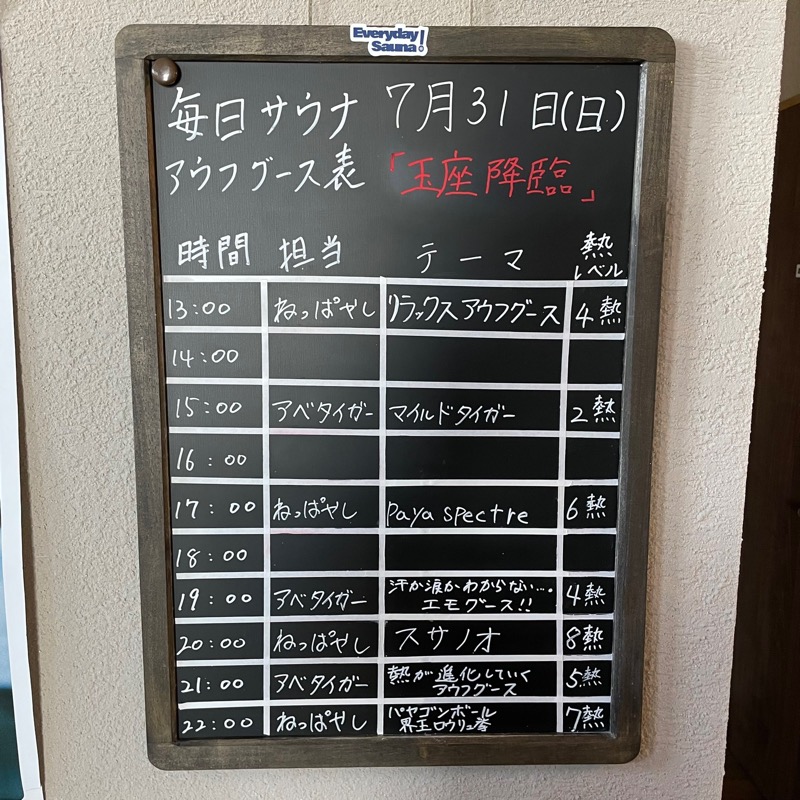 Everyday
Sauna!
毎日サウナ 7月31日(日)
アウフグース表 「玉座降臨」
時間 担当 テーマ 熱レベル
13:00 ねっぱやし リラックスアウフグース 4熱
14:00
15:00 アベタイガー マイルドタイガー 2熱
16:00
17:00 ねっぱやし Paya spectre 6熱
18:00
19:00 アベタイガー 汗か涙かわからない...。
エモグース!! 4熱
20:00 ねっぱやし スサノオ 8熱
21:00 アベタイガー 熱が進化していく
アウフグース 5熱
22:00 ねっぱやし パヤゴンボール
界王ロウリュ拳 7熱